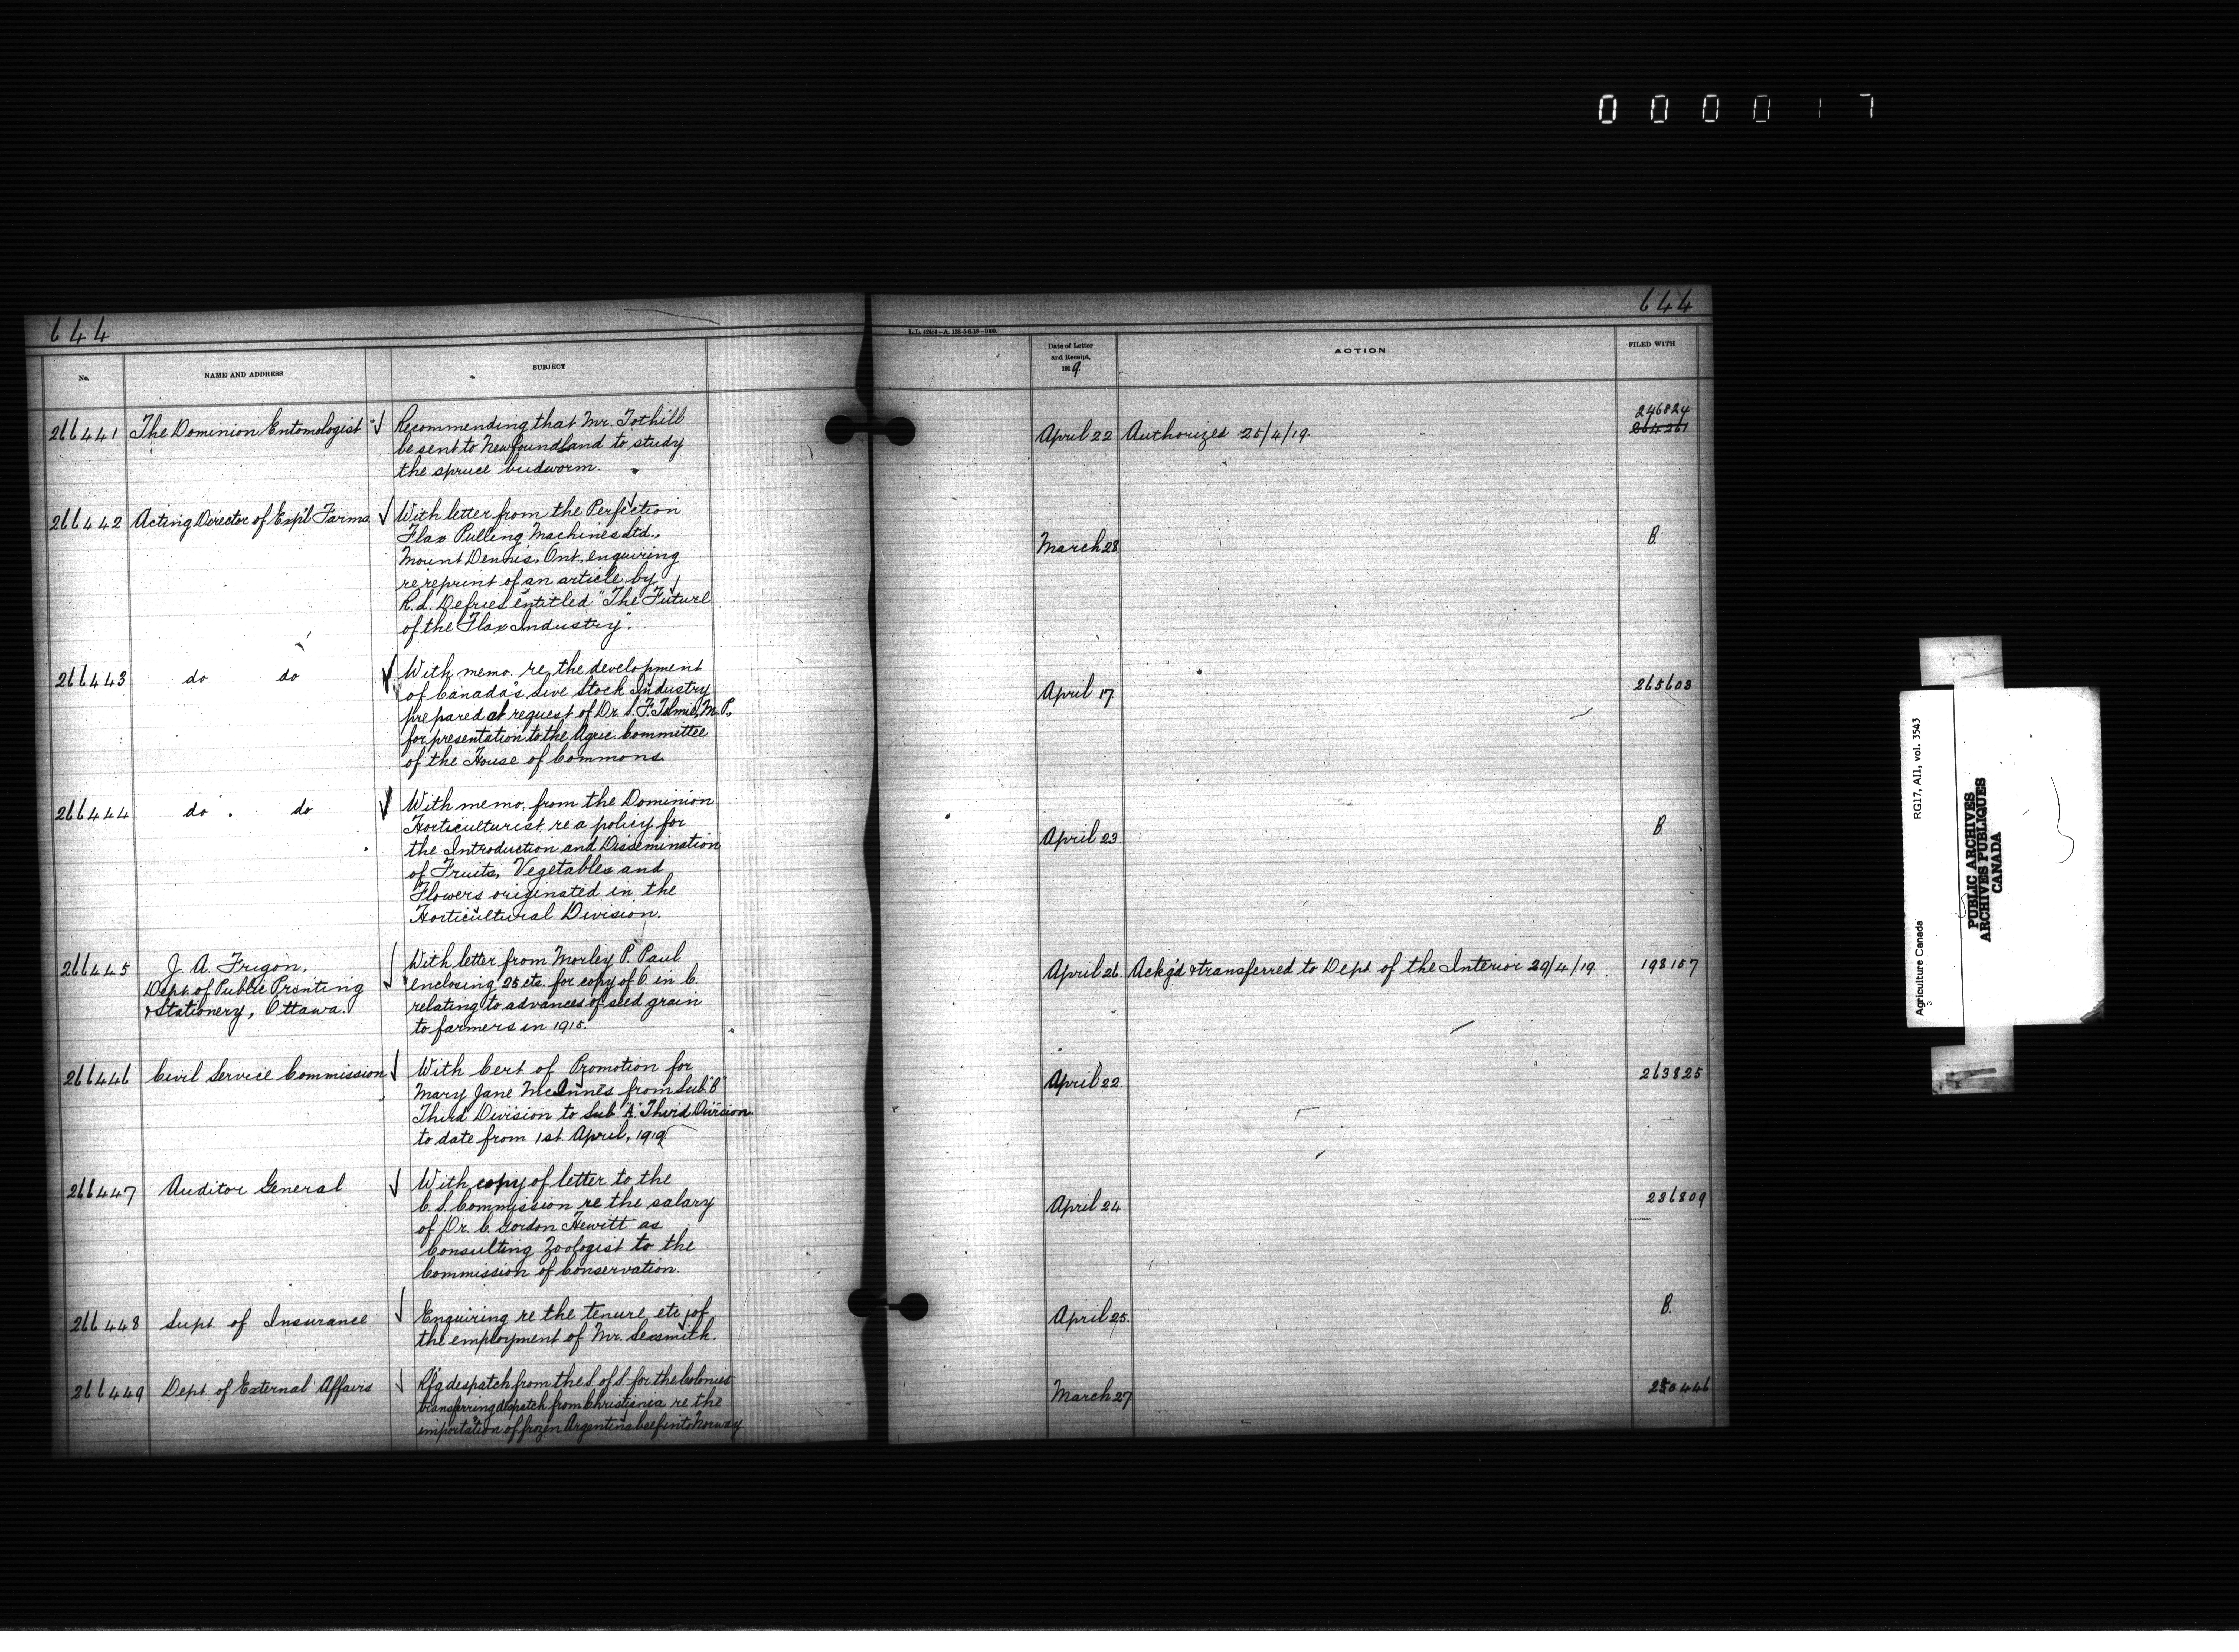 000017
644
644
L.L. 42414—A. 138-5-6-18—1000.
No.
NAME AND ADDRESS
SUBJECT
Date of Letter
and Receipt,
1919
ACTION
FILED WITH
266441 The Dominion Entomologist Recommending that Mr. Tothill
be sent to Newfoundland to study
the spruce budworm.
April 22 Authorized 25/4/19.
246824
264261
266442 Acting Director of Exp'l Farms With letter from the Perfection
Flax Pulling Machines Ltd.,
Mount Dennis, Ont., enquiring
re reprint of an article by
R.d. Defries entitled "The Future
of the Flax Industry".
March 28 B.
266443 do do With memo. re the development
of Canada's Live Stock Industry
prepared at request of Dr. S. F. Tolmie, M.P.
for presentation to the Agric. Committee
of the House of Commons.
April 17 265603
266444 do do With memo. from the Dominion
Horticulturist re a policy for
the Introduction and Dissemination
of Fruits, Vegetables and
Flowers originated in the
Horticultural Division.
April 23 B
266445 J. A. Frigon,
Dept. of Public Printing
& Stationery, Ottawa.
With letter from Morley P. Paul
enclosing 25 cts. for copy of O. in C.
relating to advances of seed grain
to farmers in 1915.
April 26 Ackg'd & transferred to Dept. of the Interior 29/4/19 198157
266446 Civil Service Commission With Cert of Promotion for
Mary Jane McInnes from Sub "B"
Third Division to Sub "A" Third Division
to date from 1st April, 1919
April 22 263825
266447 Auditor General With copy of letter to the
C. S. Commission re the salary
of Dr. C. Gordon Hewitt as
Consulting Zoologist to the
Commission of Conservation.
April 24 236809
266448 Supt of Insurance Enquiring re the tenure etc., of
the employment of Mr. Sexsmith.
April 25. B.
266449 Dept of External Affairs Rfg despatch from the S. of S. for the Colonies
transferring despatch from Christiania re the
importation of frozen Argentina beef into Norway
March 27 250446
Agriculture Canada RG17, A11, vol. 3543
PUBLIC ARCHIVES
ARCHIVES PUBLIQUES
CANADA